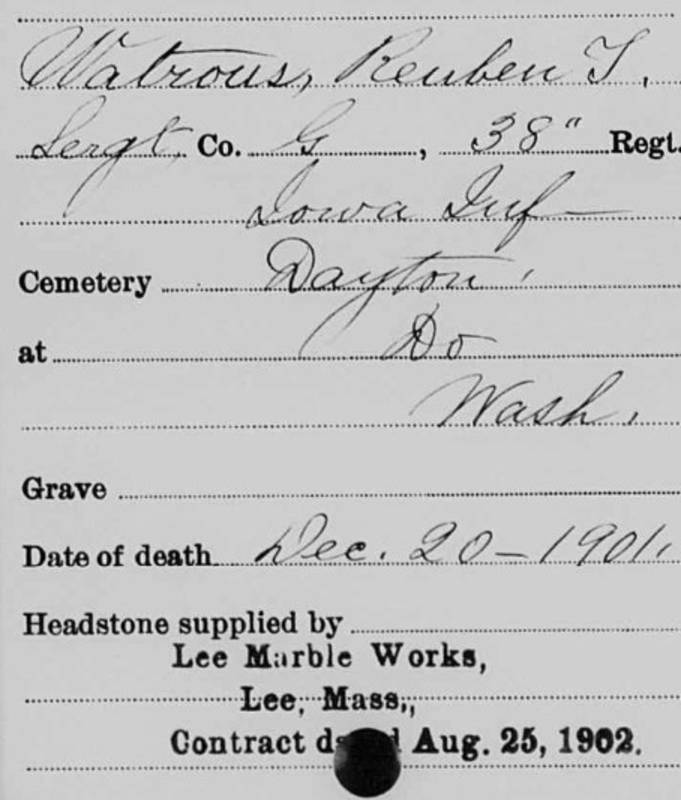 Watrous, Reuben T.
Sergt. Co. G, 38" Regt.
Iowa Inf
Cemetery Dayton,
at Do
Wash.
Grave
Date of death Dec. 20-1901.
Headstone supplied by
Lee Marble Works,
Lee, Mass.,
Contract Aug. 25, 1902.